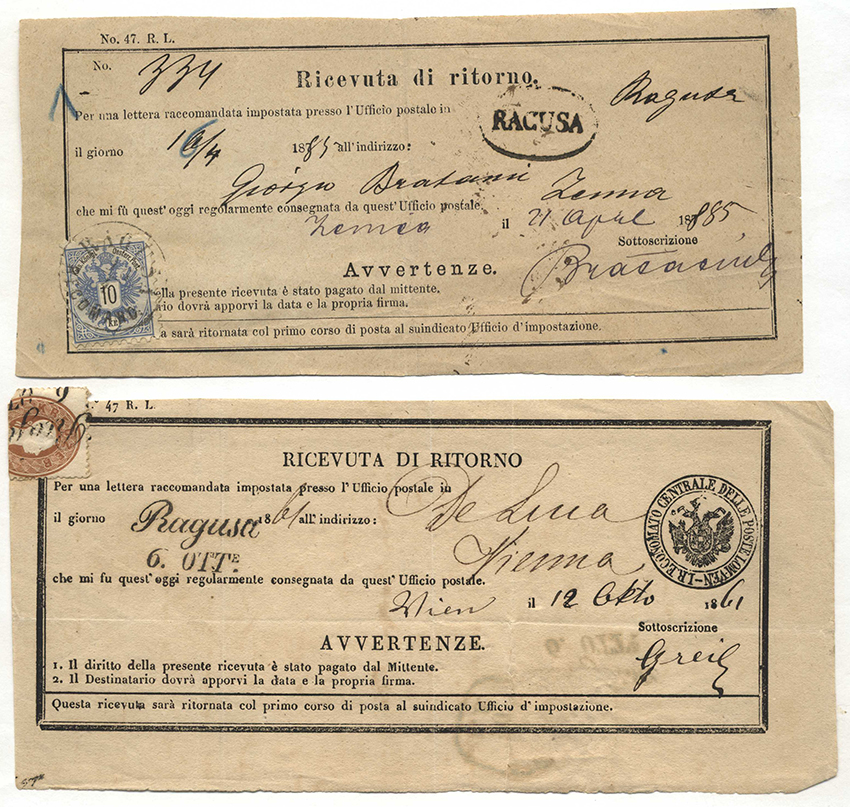 No. 47. R. L.
No. 334
Ricevuta di ritorno.
Ragusa
Per una lettera raccomandata impostata presso l'Ufficio postale in
RAGUSA
il giorno 16/4 1885 all'indirizzo:
Giorgio
che mi fù quest'oggi regolarmente consegnata da quest'Ufficio postale.
il 21 April 1885
Sottoscrizione
Avvertenze.
10
ella presente ricevuta è stato pagato dal mittente.
ario dovrà apporvi la data e la propria firma.
a sarà ritornata col primo corso di posta al suindicato Ufficio d'impostazione.
47 R. L.
RICEVUTA DI RITORNO
Per una lettera raccomandata impostata presso l'Ufficio postale in
il giorno Ragusa 1861 all'indirizzo: De Luca
6. OTTE.
Vienna
I. R. ECONOMATO CENTRALE DELLE POSTE LOM. VEN.
che mi fu quest'oggi regolarmente consegnata da quest'Ufficio postale.
Wien il 12 Okto 1861
Sottoscrizione
AVVERTENZE.
1. Il diritto della presente ricevuta è stato pagato dal Mittente.
2. Il Destinatario dovrà apporvi la data e la propria firma.
Questa ricevuta sarà ritornata col primo corso di posta al suindicato Ufficio d'impostazione.